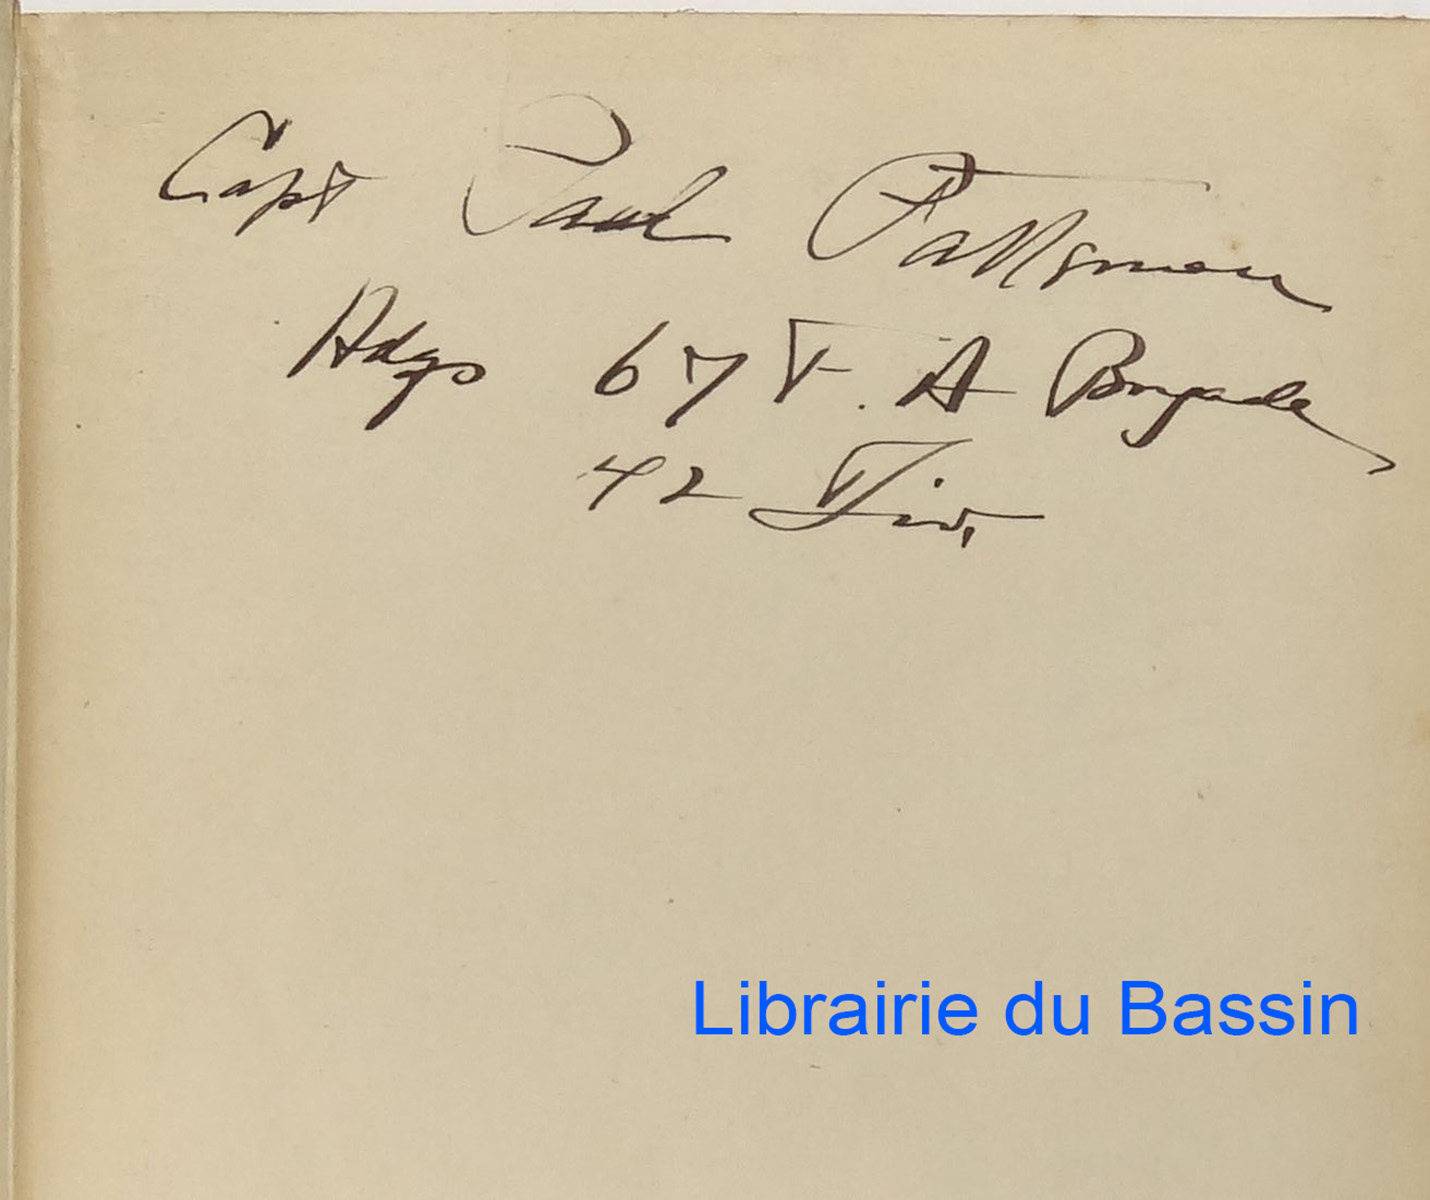 Capt Paul
Hdqs 67 F. A Brigade
42 Div,
Librairie du Bassin